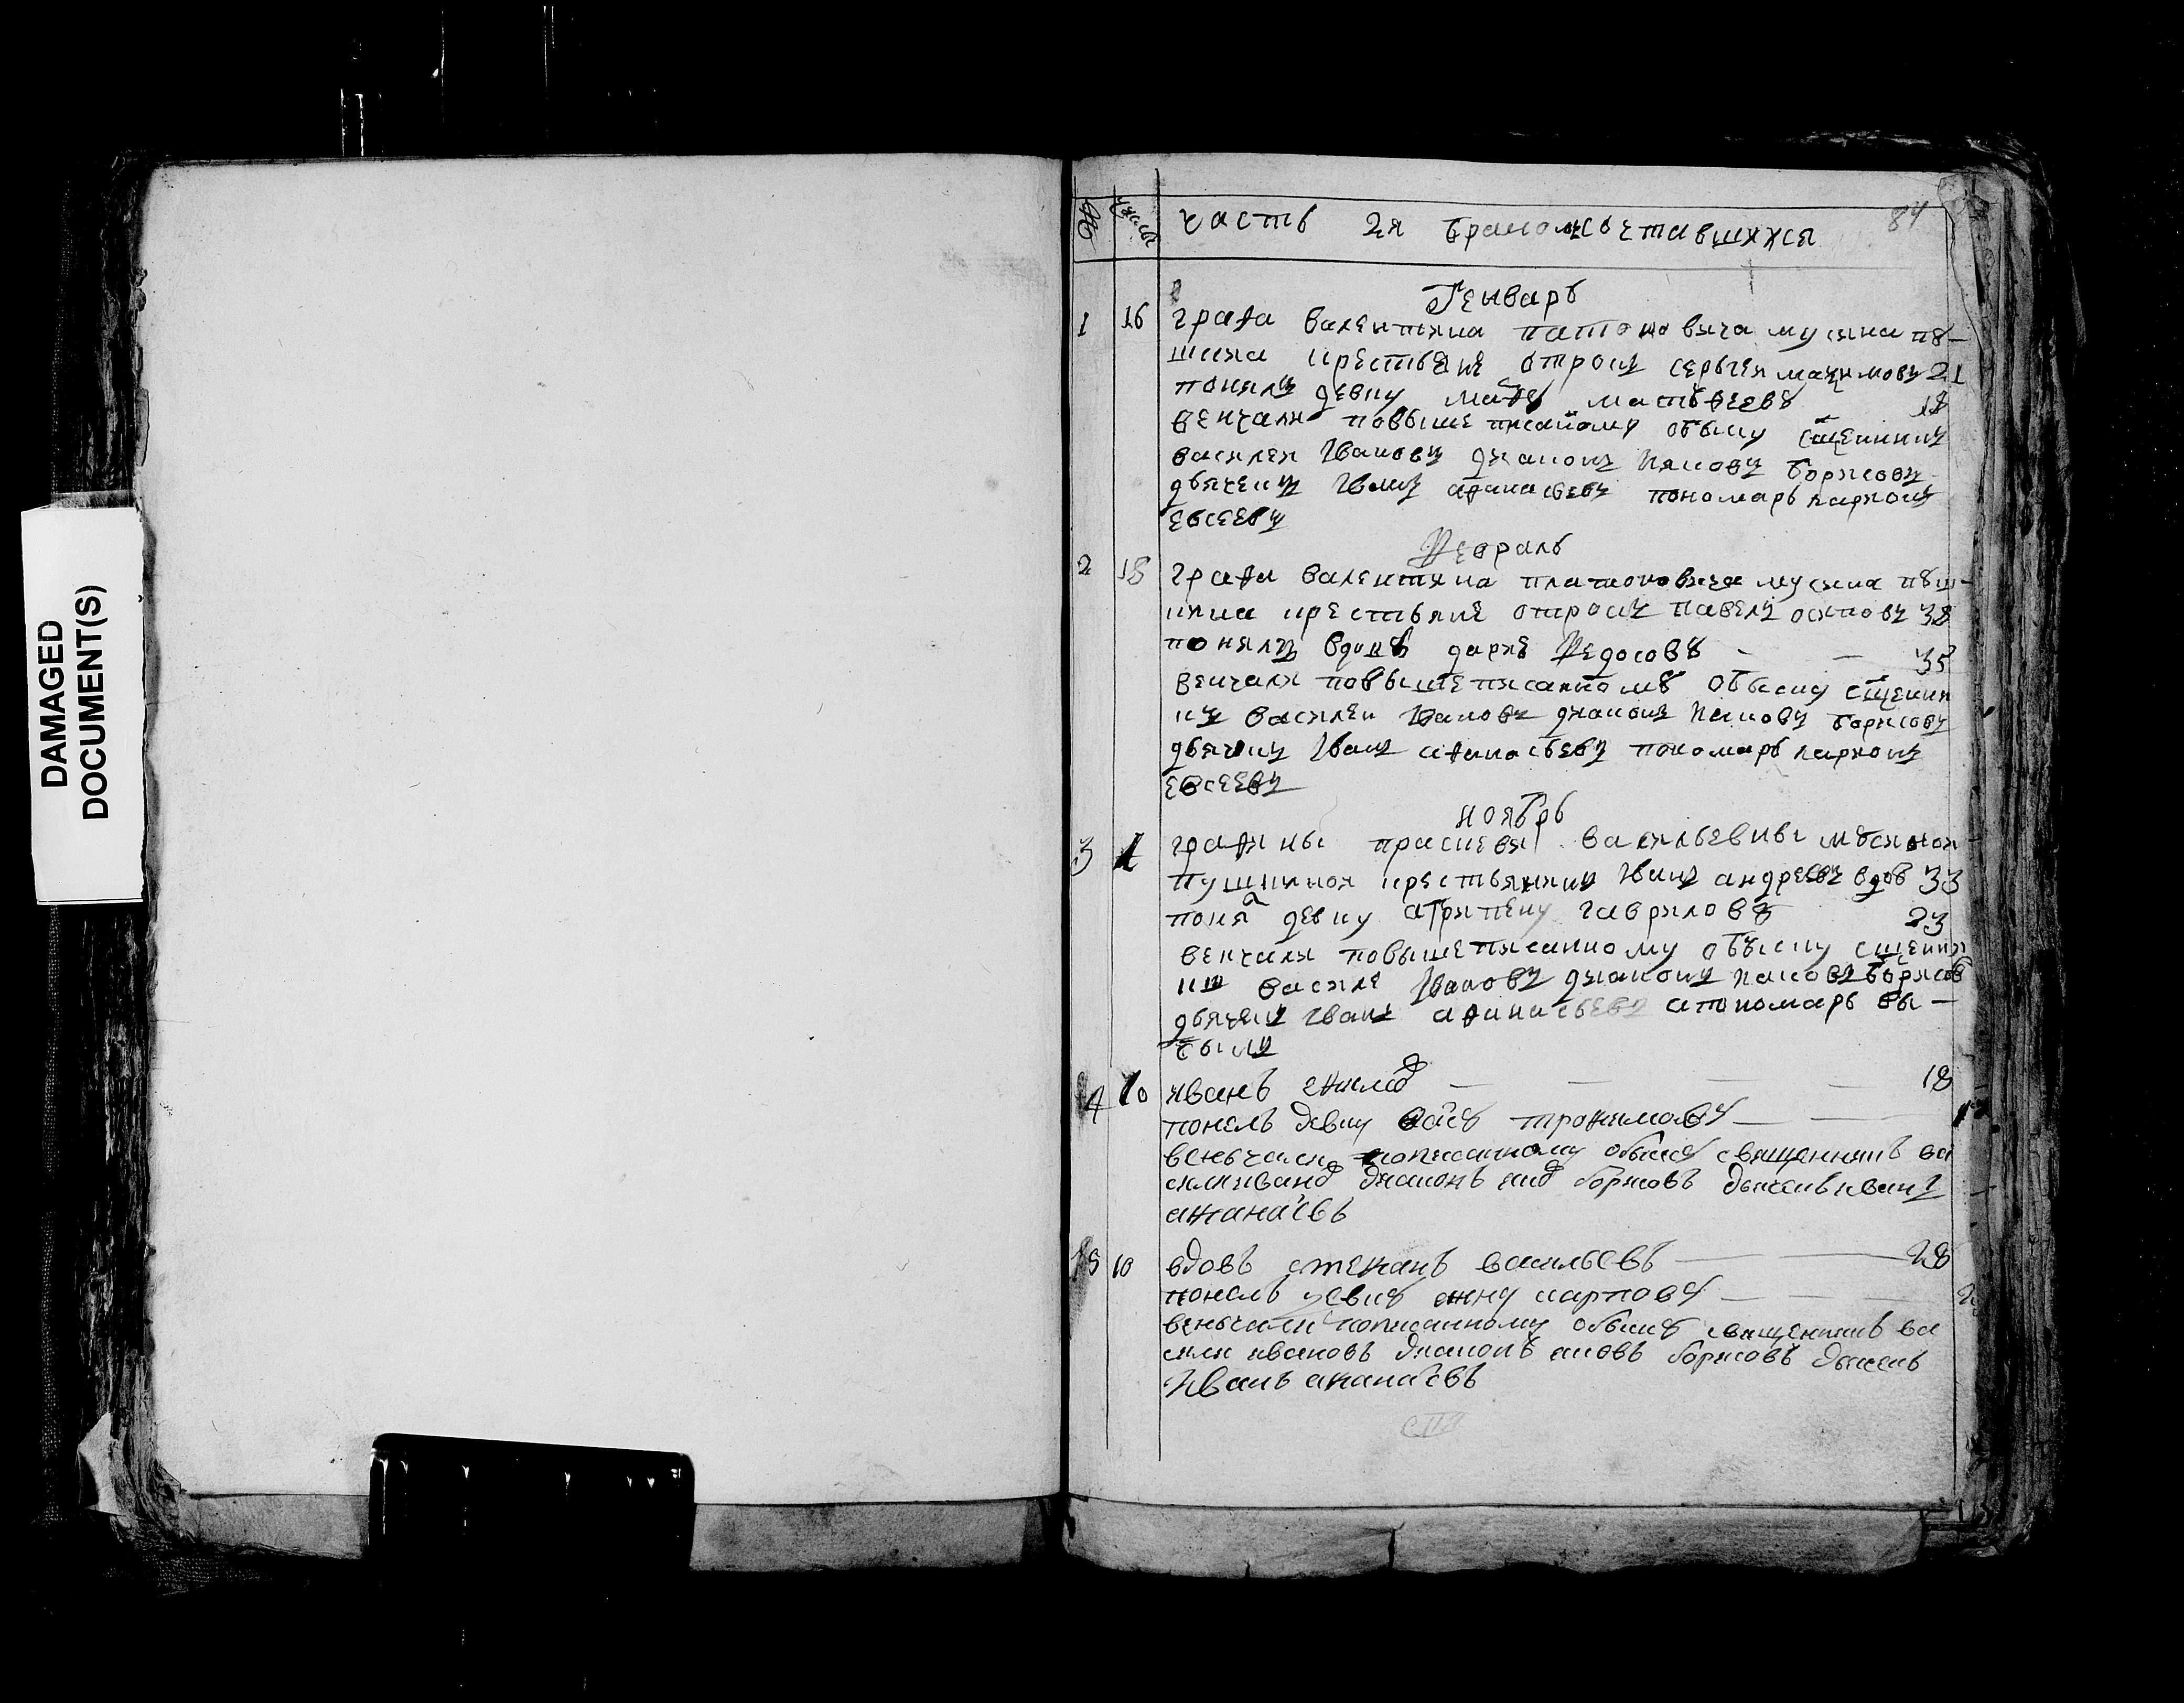 DAMAGED
DOCUMENT(S)
84
№ число часть 2я бракомсочетавшихся
Генварь
1 16 графа валентина платоновича мусина пꙋ—
шкина крестьяне отрокъ сергеи мақимовъ 21
понялъ девку маѳу матьвеевꙋ 18
венчали повыше писаному обыску сщенникъ
василеи Ивановъ диаконъ Iяковъ борисовъ
дьячекъ Иванъ афанасьевъ пономарь карпокъ
евсеевъ
Февраль
2 18 графа валентина платоновича мусина пꙋш—
кина крестьяне отрокъ павелъ осиповъ 38
понялъ вдовꙋ дарю Федосовꙋ — — 35
венчали повышеписанномꙋ обыску сщенни
къ василеи Ивановъ диаконъ Iаковъ борисовъ
дьячокъ Иванъ афанасьевъ пономарь карпокъ
евсеевъ
ноябрь
3 1 графины прасковьи васильевны мꙋсиной
пушкиной крестьянинъ Иванъ андреевъ вдовъ 33
поня девку агрипену гаврилову 23
венчали повышеписанному обыску сщенни
къ василе Ивановъ диаконъ Iаковъ борисов
дьячекъ Иванъ афанасьевъ а пономарь вы—
былъ
4 10 иванъ — — — — 18
понелъ девку трофимову — —
веньчали пописанному обыскꙋ священникъ ва
сили иванов диаконъ яков борисовъ дьячекъ иванъ
афанасевъ
5 10 вдовъ стефанъ васильевъ — 28
понелъ девкꙋ анну карпову — — — 2
веньчали пописанному обыскꙋ священникъ ва
сили ивановъ диаконъ яковъ борисовъ дьячекъ
Иванъ афанасевъ